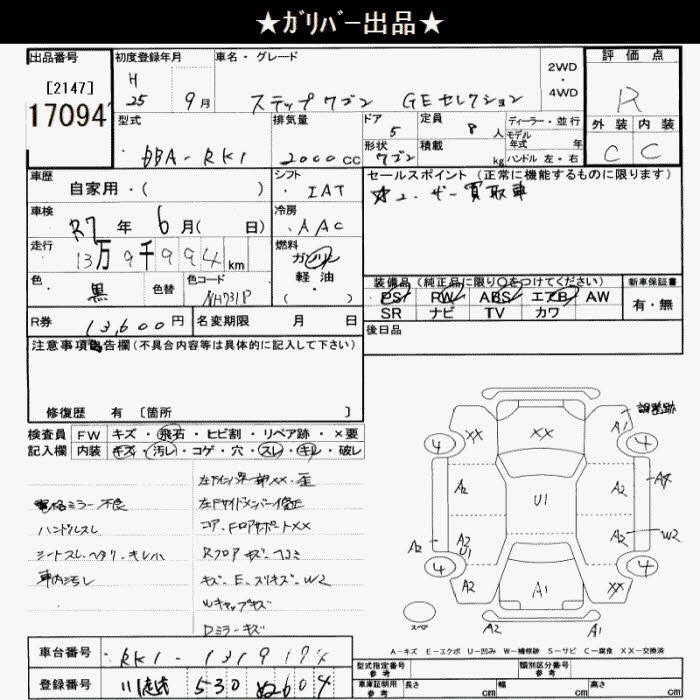 ★ガリバー出品★
出品番号
[2147]
17094
初度登録年月
H
25 9月
車名・グレード
ステップワゴン GEセレクション
2WD
・
4WD
評価点
R
外装 内装
C C
型式
DBA-RK1
排気量
2000cc
ドア
5
形状
ワゴン
定員
8人
積載
kg
ディーラー・並行
モデル
年式 年
ハンドル 左・右
車歴
自家用・( )
シフト
IAT
セールスポイント (正常に機能するものに限ります)
ユーザー買取車
車検
R7年 6月( 日)
冷房
AAC
走行
13万9千994km
燃料
ガソリン
軽・油
( )
色
黒
色替
色コード
NH731P
装備品(純正品に限り○をつけてください)
PS PW ABS エアB AW
SR ナビ TV カワ
新車保証書
有・無
R券
13,600円
名変期限 月 日
後日品
注意事項報告欄(不具合内容等は具体的に記入して下さい)
修復歴 有 [箇所 ]
検査員
記入欄
FW キズ・飛石・ヒビ割・リペア跡・×要
内装 キズ・汚レ・コゲ・穴・スレ・キレ・破レ
電格ミラー不良
ハンドルスレ
シートスレ・ヘタリ・キレ小
車内汚レ
左Fサイドメンバー修正
コア、Fロアサポート××
Rフロアキズ・ヘコミ
キズ・E、スリキズ・W2
Wキャップキズ
Dミラーキズ
調整跡
A1
××
××
4
4
A2
U1
A2
A4
A2
A2
U1
A2
W2
4
4
A2
A1
××
スペア
A2
A2
A-キズ E-エクボ U-凹み W-補修跡 S-サビ C-腐食 XX-交換済
車台番号
RK1-1319174
登録番号
530 ぬ604
型式指定番号
参考
類別区分番号
参考
車庫証明用
参考
長さ cm 幅 cm 高さ cm